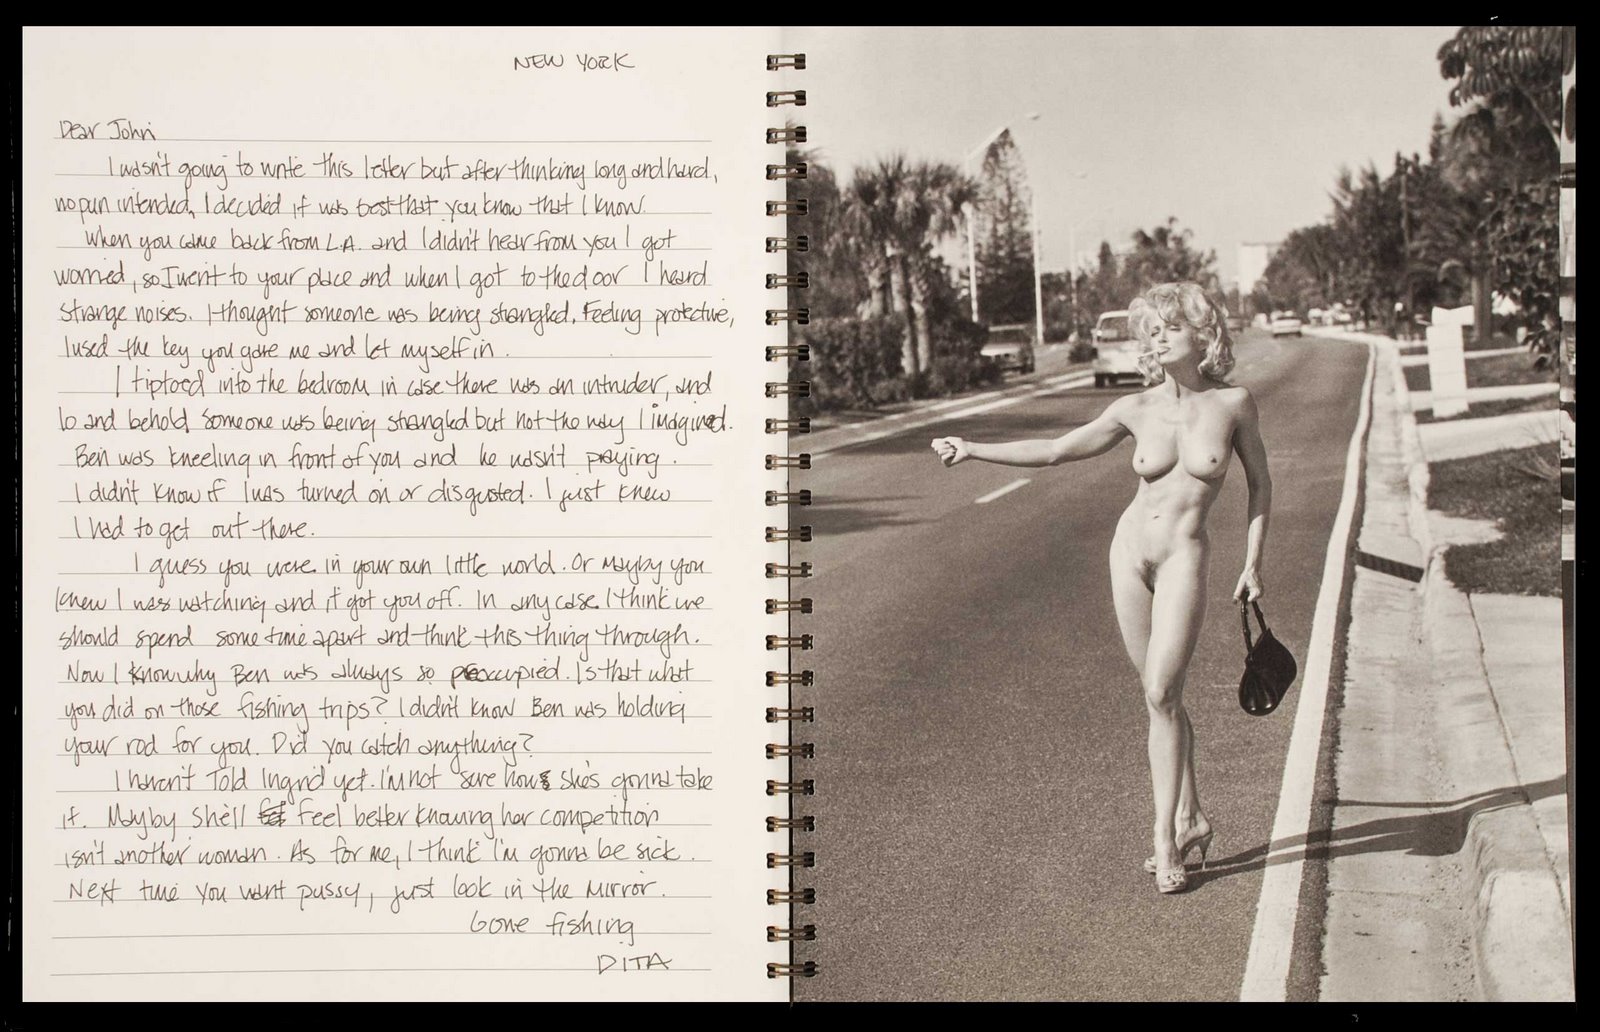 NEW YORK
Dear John
I wasn't going to write this letter but after thinking long and hard,
no pun intended, I decided it was best that you know that I know.
When you came back from L.A. and I didn't hear from you I got
worried, so I went to your place and when I got to the door I heard
strange noises. I thought someone was being strangled. Feeling protective,
I used the key you gave me and let myself in.
I tiptoed into the bedroom in case there was an intruder, and
lo and behold someone was being strangled but not the way I imagined.
Ben was kneeling in front of you and he wasn't praying.
I didn't know if I was turned on or disgusted. I just knew
I had to get out there.
I guess you were in your own little world. Or Mayby you
knew I was watching and it got you off. In any case I think we
should spend some time apart and think this thing through.
Now I know why Ben was always so preoccupied. Is that what
you did on those fishing trips? I didn't know Ben was holding
your rod for you. Did you catch anything?
I haven't Told Ingrid yet. I'm not sure how she's gonna take
it. Mayby She'll Feel better knowing her competition
isn't another woman. As for me, I think I'm gonna be sick.
Next time you want pussy, just look in the Mirror.
Gone fishing
DITA